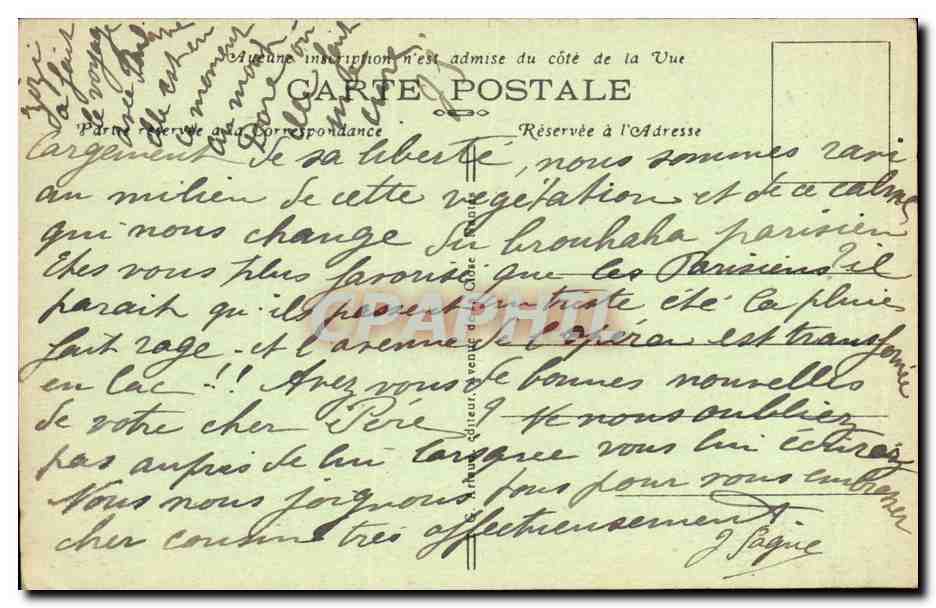 Zozo
a fait
le voyage
avec
elle est en
ce moment
au mont
Dore où
elle
fait
une
cure
Aucune inscription n'est admise du côté de la Vue
CARTE POSTALE
Partie réservée à la Correspondance
Réservée à l'Adresse
largement de sa liberté, nous sommes ravi
au milieu de cette végétation et de ce calme
qui nous change du brouhaha parisien
Etes vous plus favorisé que les Parisiens? il
parait qu'ils passent un triste été la pluie
fait rage - et l'avenue de l'opéra est transformée
en lac !! Avez vous de bonnes nouvelles
de votre cher Père? Ne nous oubliez
pas auprès de lui lorsque vous lui écrirez
Nous nous joignons tous pour vous embrasser
cher cousin très affectueusement
G. Artaud, éditeur, avenue de la Close Nantes
CPAPHIL